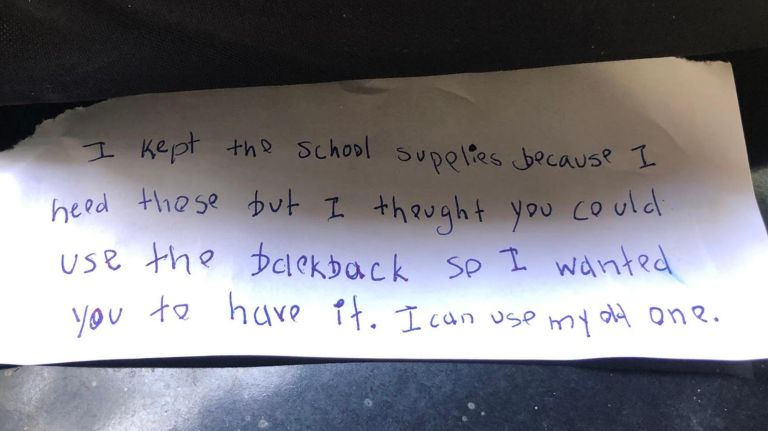 I kept the school supplies because I
need those but I thought you could
use the backback so I wanted
you to have it. I can use my old one.